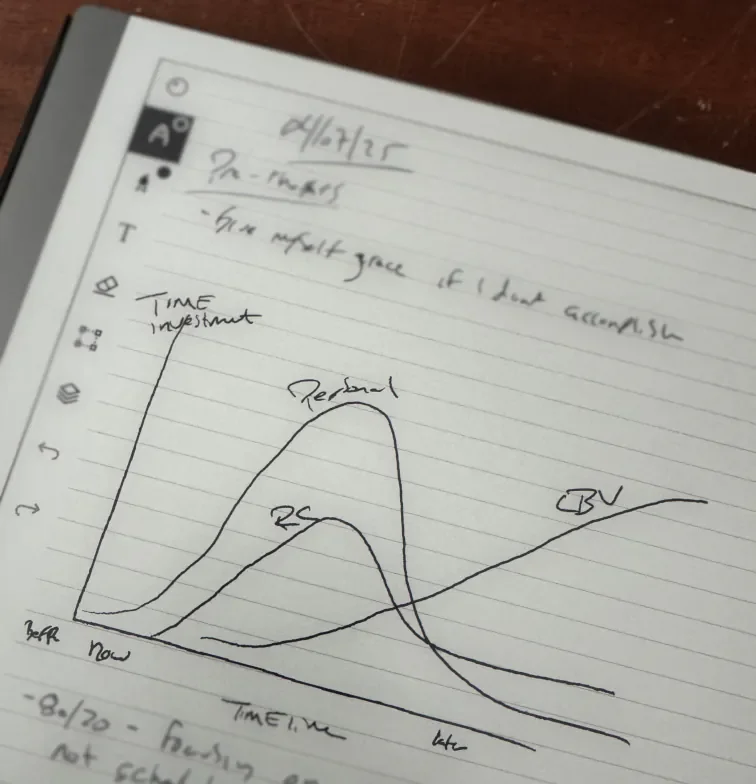 04/07/25
- Give myself grace if I dont accomplish
TIME
investment
Personal
RS
CBV
Now
TIMELine
late
- 80/20 - Focusing on
not
A
T